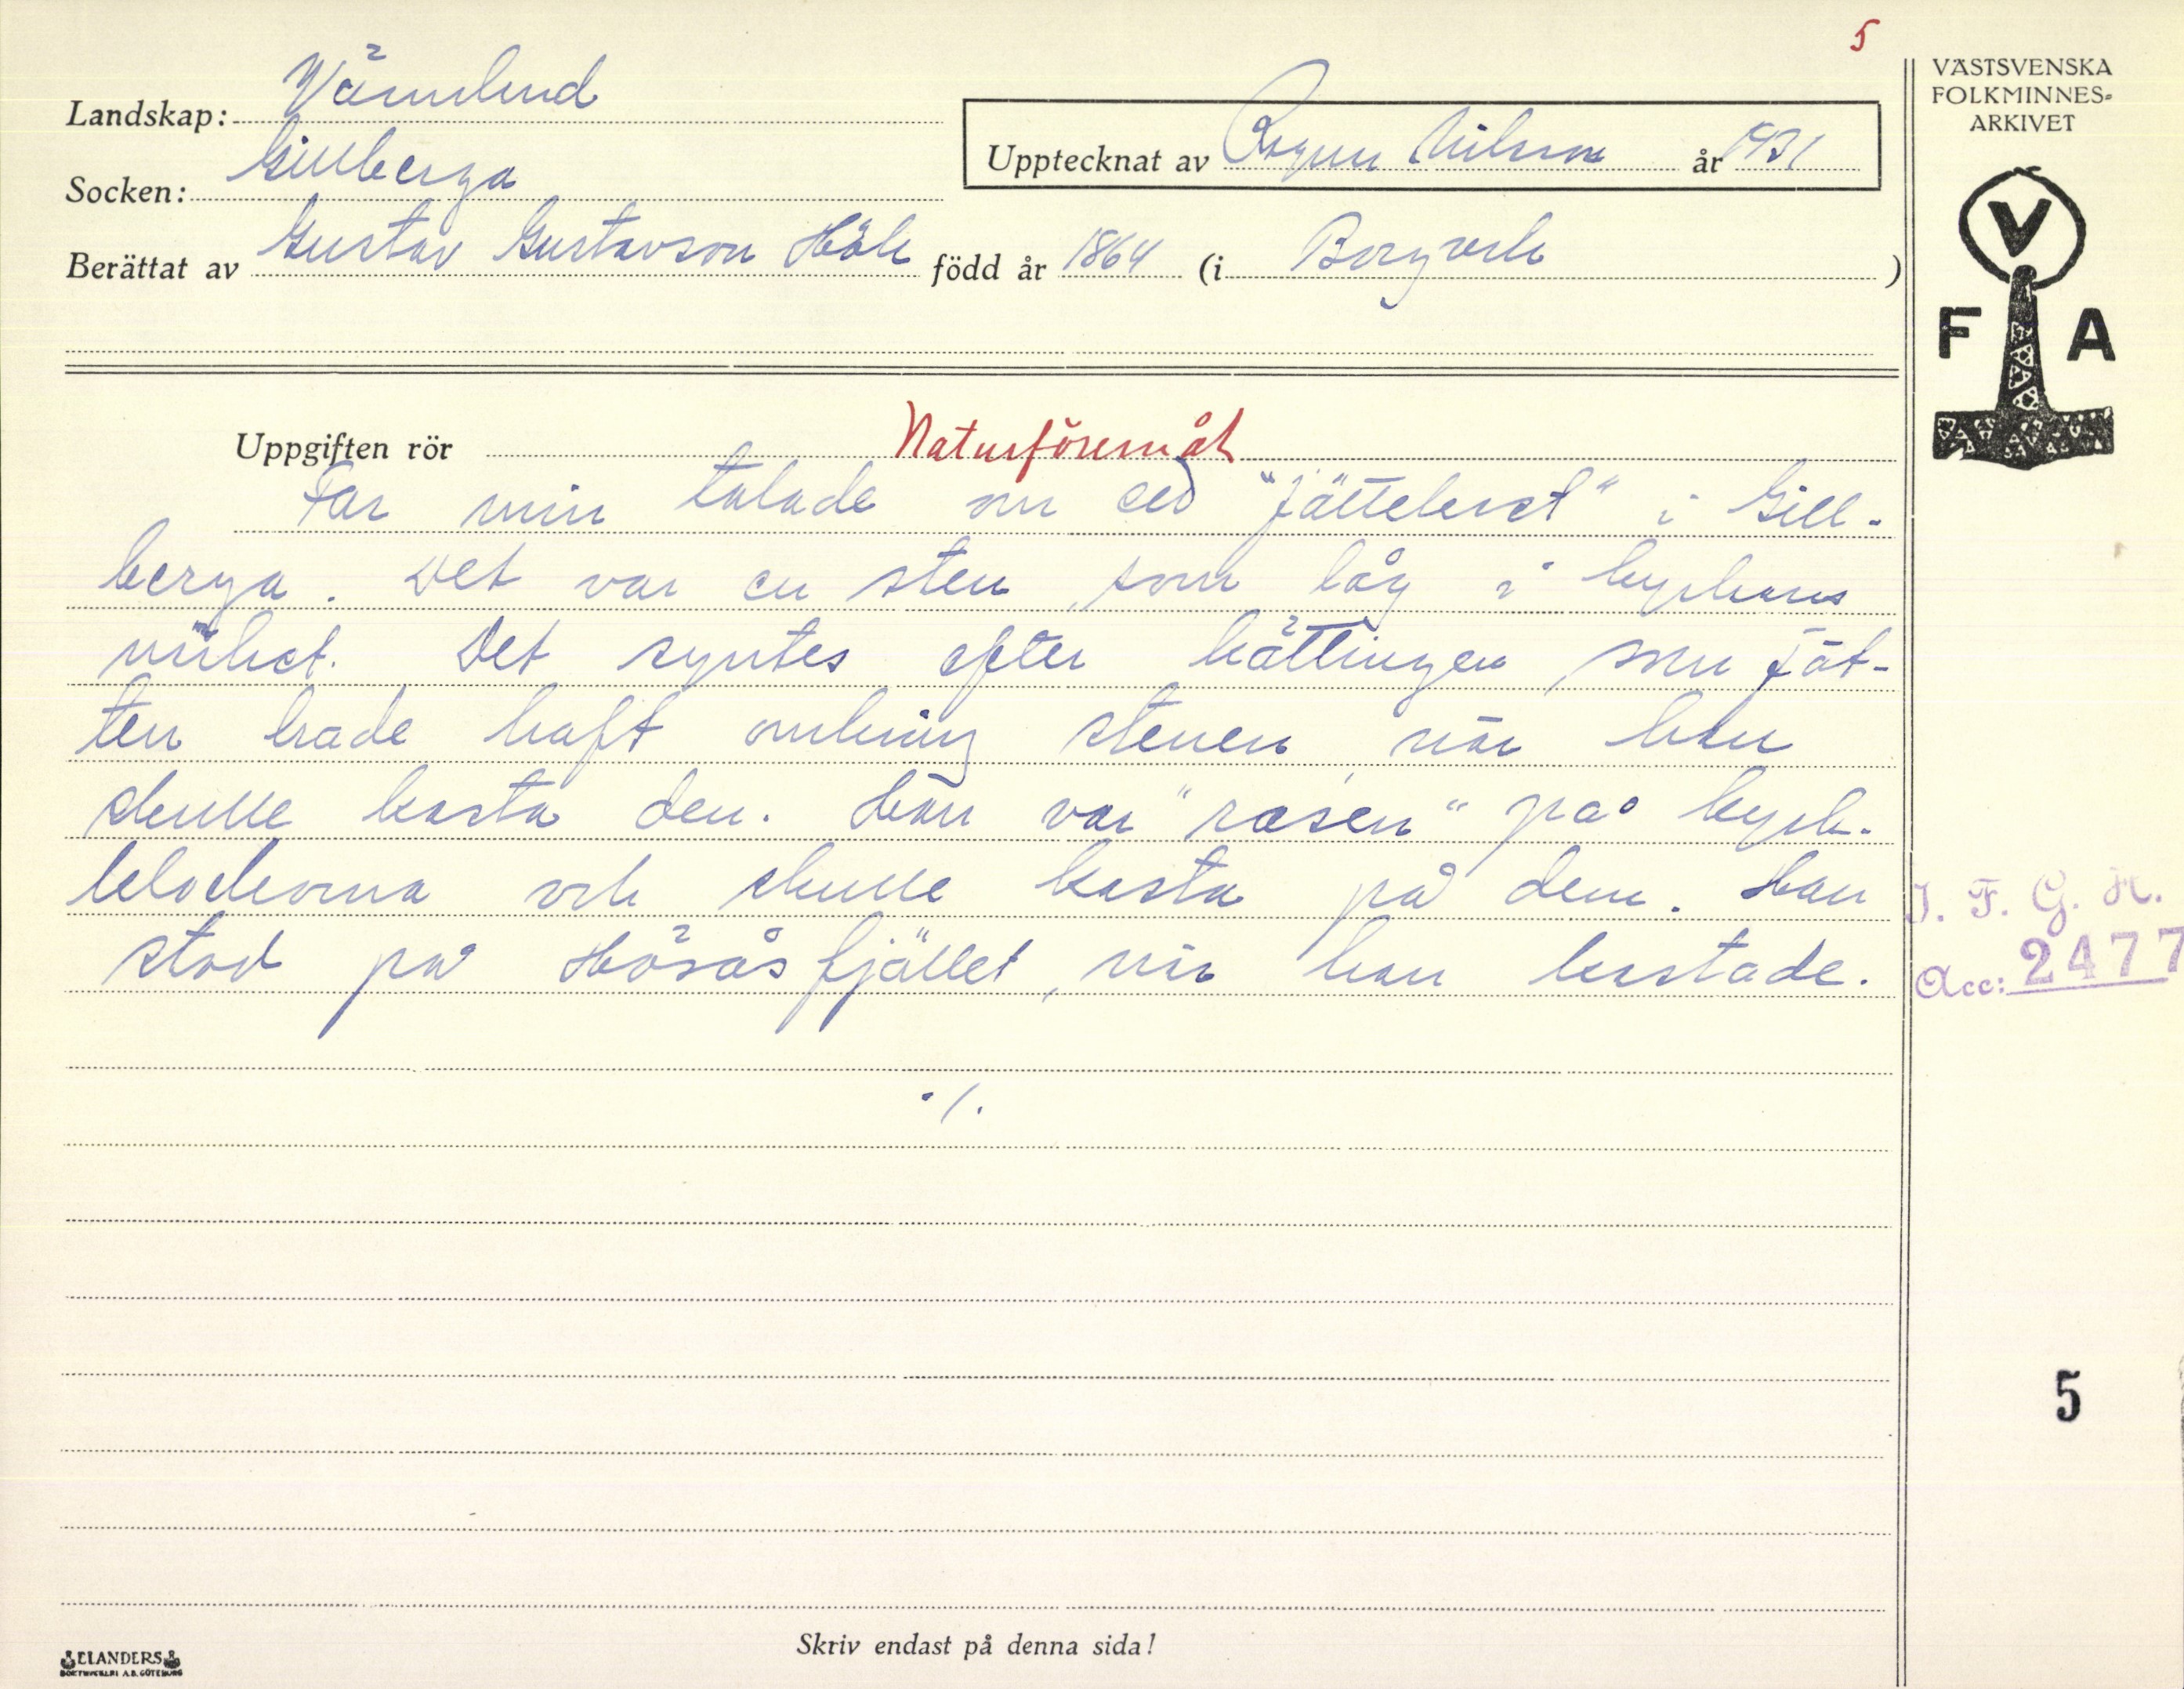 5
VÄSTSVENSKA
FOLKMINNES-
ARKIVET
Landskap: Värmland
Socken: Gillberga
Upptecknat av Ragnar Nilsson år 1931
Berättat av Gustav Gustavson Hök född år 1864 (i Borgvik)
V
F A
Uppgiften rör Naturföremål
Far min talade om ed "Jättelerset" i Gill-
berga. Det var en sten, som låg i kyrkans
närhet. Det syntes efter hättingen, som Jät-
ten hade haft omkring stenen, när han
skulle kasta den. Han var "rasen" på kyrk-
klockorna och skulle kasta på dem. Han
stod på Hösåsfjället, när han kastade.
I. F. G. H.
Acc: 2477
./.
5
Skriv endast på denna sida!
ELANDERS
BOKTRYCKERI A.B. GÖTEBORG